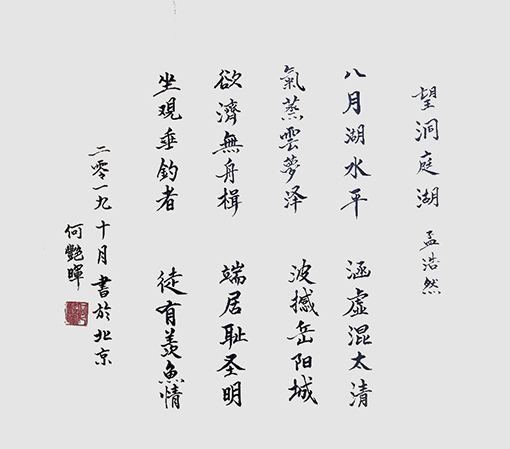 望洞庭湖 孟浩然
八月湖水平 涵虚混太清
氣蒸雲夢泽 波撼岳阳城
欲濟無舟楫 端居耻圣明
坐观垂釣者 徒有羡魚情
二零一九十月書於北京
何艷暉